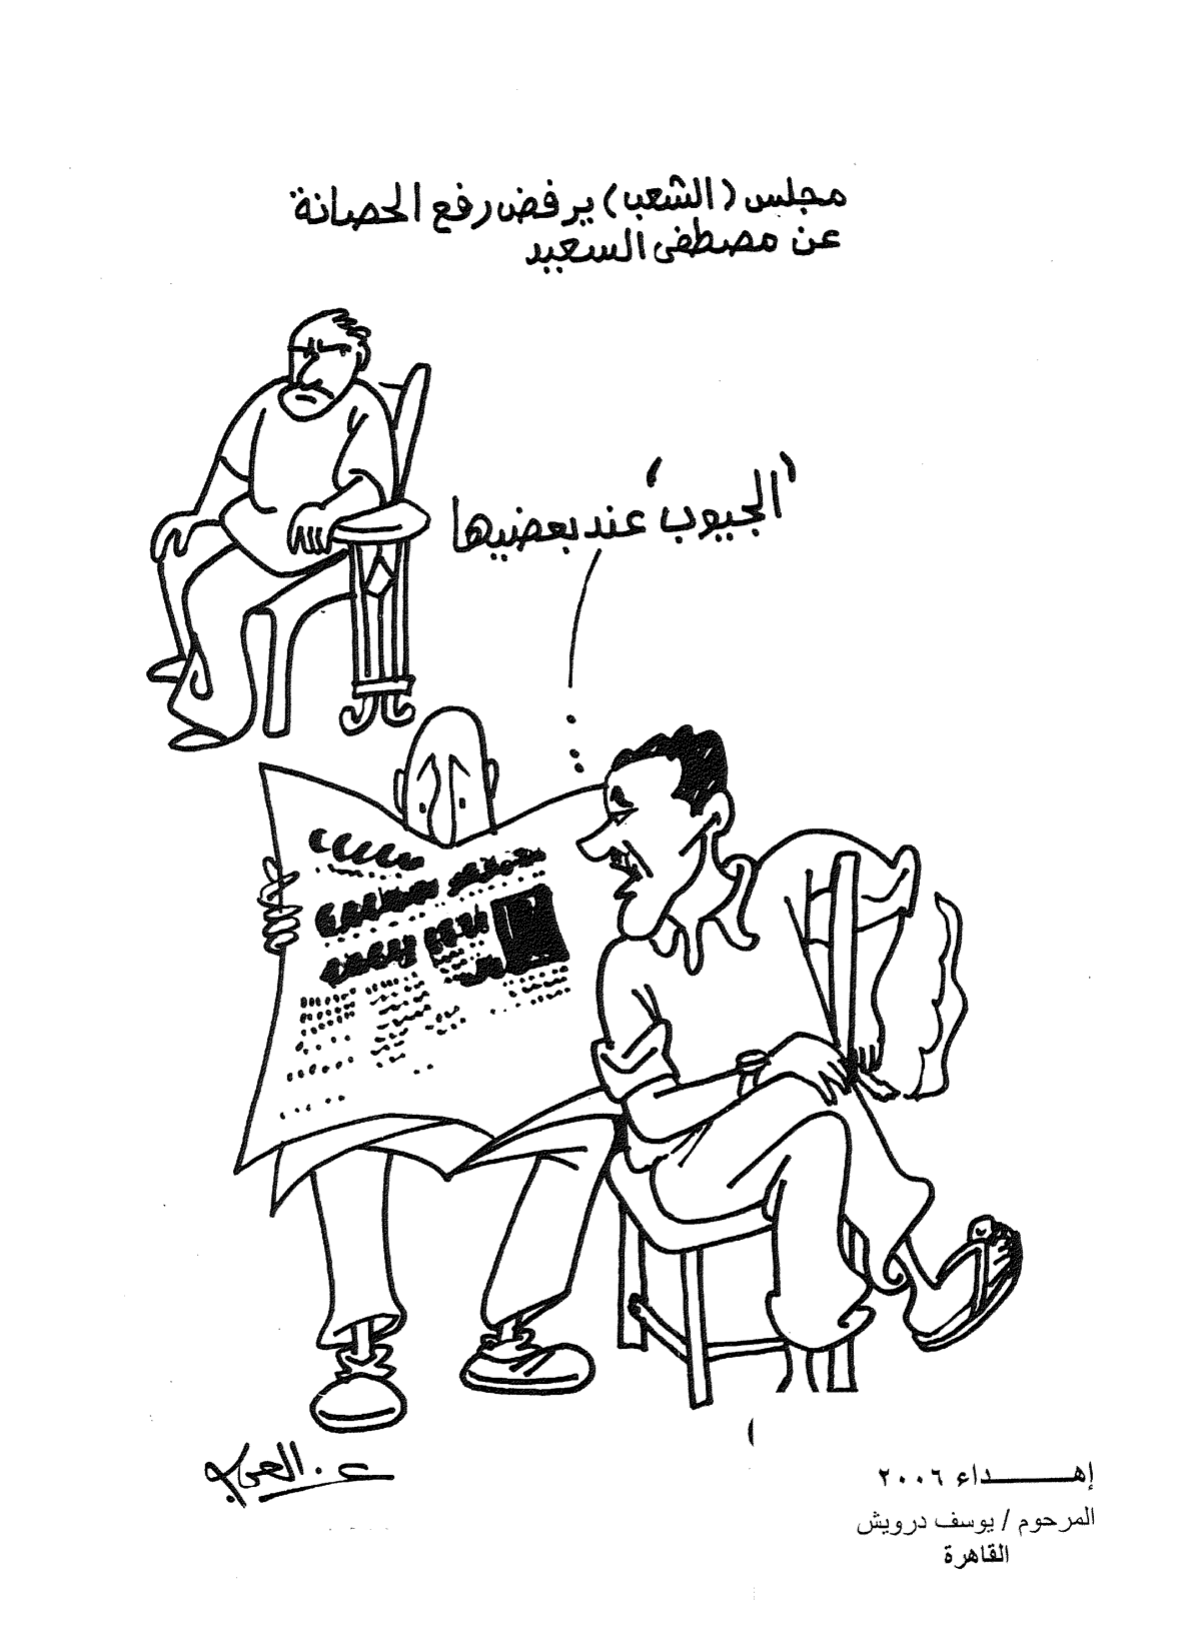 مجلس (الشعب) يرفض رفع الحصانة
عن مصطفى السعيد
'الجيوب' عند بعضيها
١
إهــــداء ٢٠٠٦
المرحوم / يوسف درويش
القاهرة